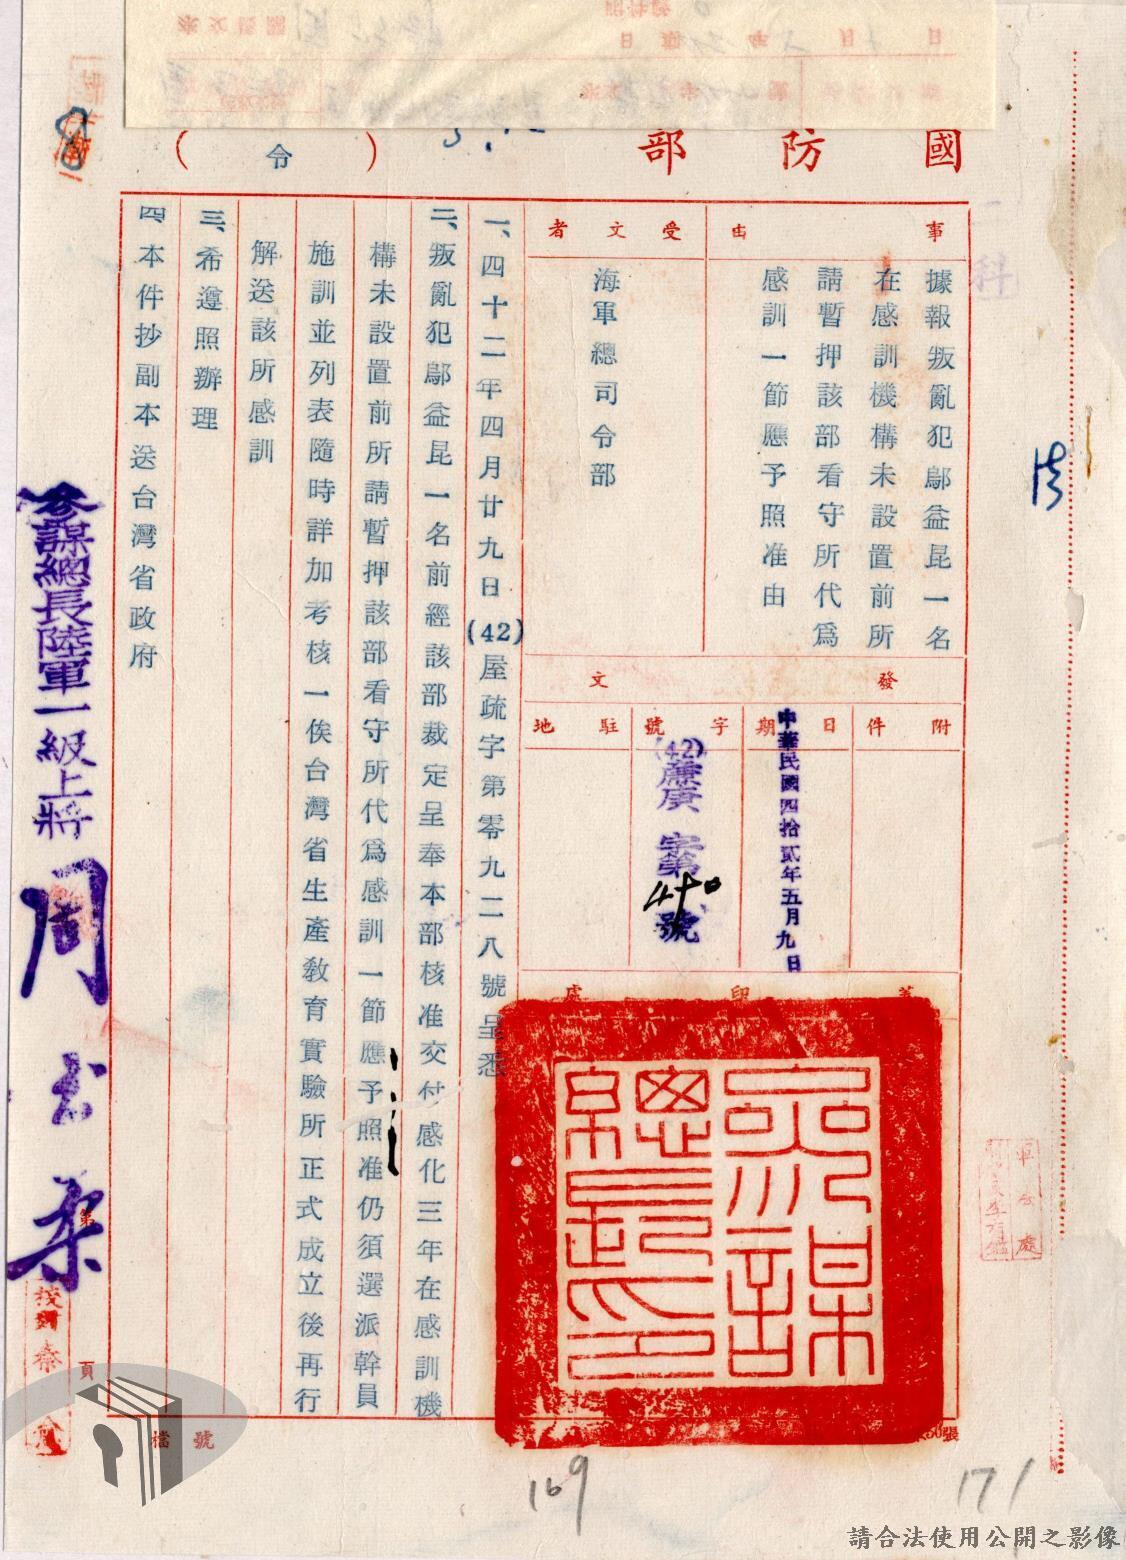 國防部
（令）
事由
據報叛亂犯鄔益昆一名
在感訓機構未設置前所
請暫押該部看守所代爲
感訓一節應予照准由
受文者
海軍總司令部
發文
附件
日期
中華民國四拾貳年五月九日
字號
(42)廉庚字第440號
駐地
蓋印處
參謀總長之印
一、四十二年四月廿九日(42)屋疏字第零九二八號呈悉
二、叛亂犯鄔益昆一名前經該部裁定呈奉本部核准交付感化三年在感訓機
構未設置前所請暫押該部看守所代爲感訓一節應予照准仍須選派幹員
施訓並列表隨時詳加考核一俟台灣省生產教育實驗所正式成立後再行
解送該所感訓
三、希遵照辦理
四、本件抄副本送台灣省政府
參謀總長陸軍一級上將周至柔
第
頁
檔號
一科
169
171
請合法使用公開之影像